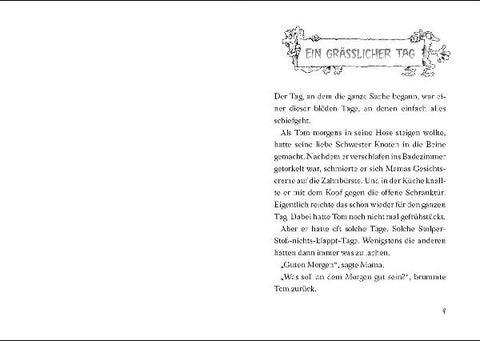 EIN GRÄSSLICHER TAG
Der Tag, an dem die ganze Sache begann, war ei-
ner dieser blöden Tage, an denen einfach alles
schiefgeht.
Als Tom morgens in seine Hose steigen wollte,
hatte seine liebe Schwester Knoten in die Beine
gemacht. Nachdem er verschlafen ins Badezimmer
getorkelt war, schmierte er sich Mamas Gesichts-
creme auf die Zahnbürste. Und in der Küche knall-
te er mit dem Kopf gegen die offene Schranktür.
Eigentlich reichte das schon wieder für den ganzen
Tag. Dabei hatte Tom noch nicht mal gefrühstückt.
Aber er hatte oft solche Tage. Solche Stolper-
Stoß-nichts-klappt-Tage. Wenigstens die anderen
hatten dann immer was zu lachen.
„Guten Morgen“, sagte Mama.
„Was soll an dem Morgen gut sein?“, brummte
Tom zurück.
9